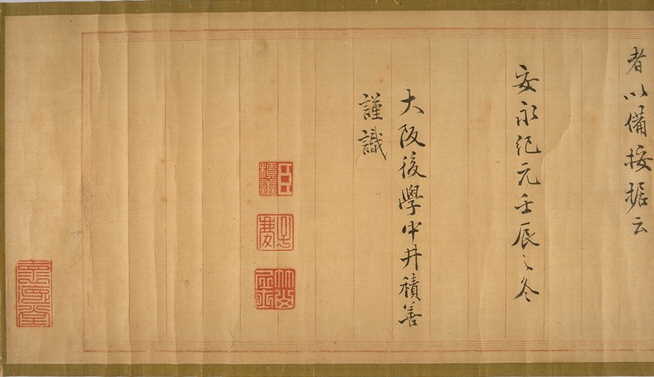 者以備按据云
安永紀元壬辰之冬
大阪後學中井積善
謹識